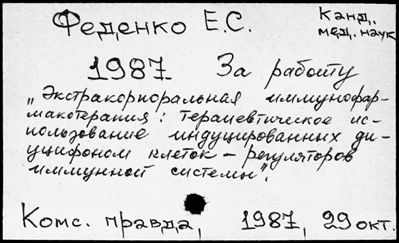 Феденко Е.С. Канд.,
мед. наук
1987 За работу
„Экстракорпоральная иммунофар-
макотерапия: терапевтическое ис-
пользование индуцированных ди-
уцифоном клеток – регуляторов
иммунной системы".
Комс. правда, 1987, 29 окт.